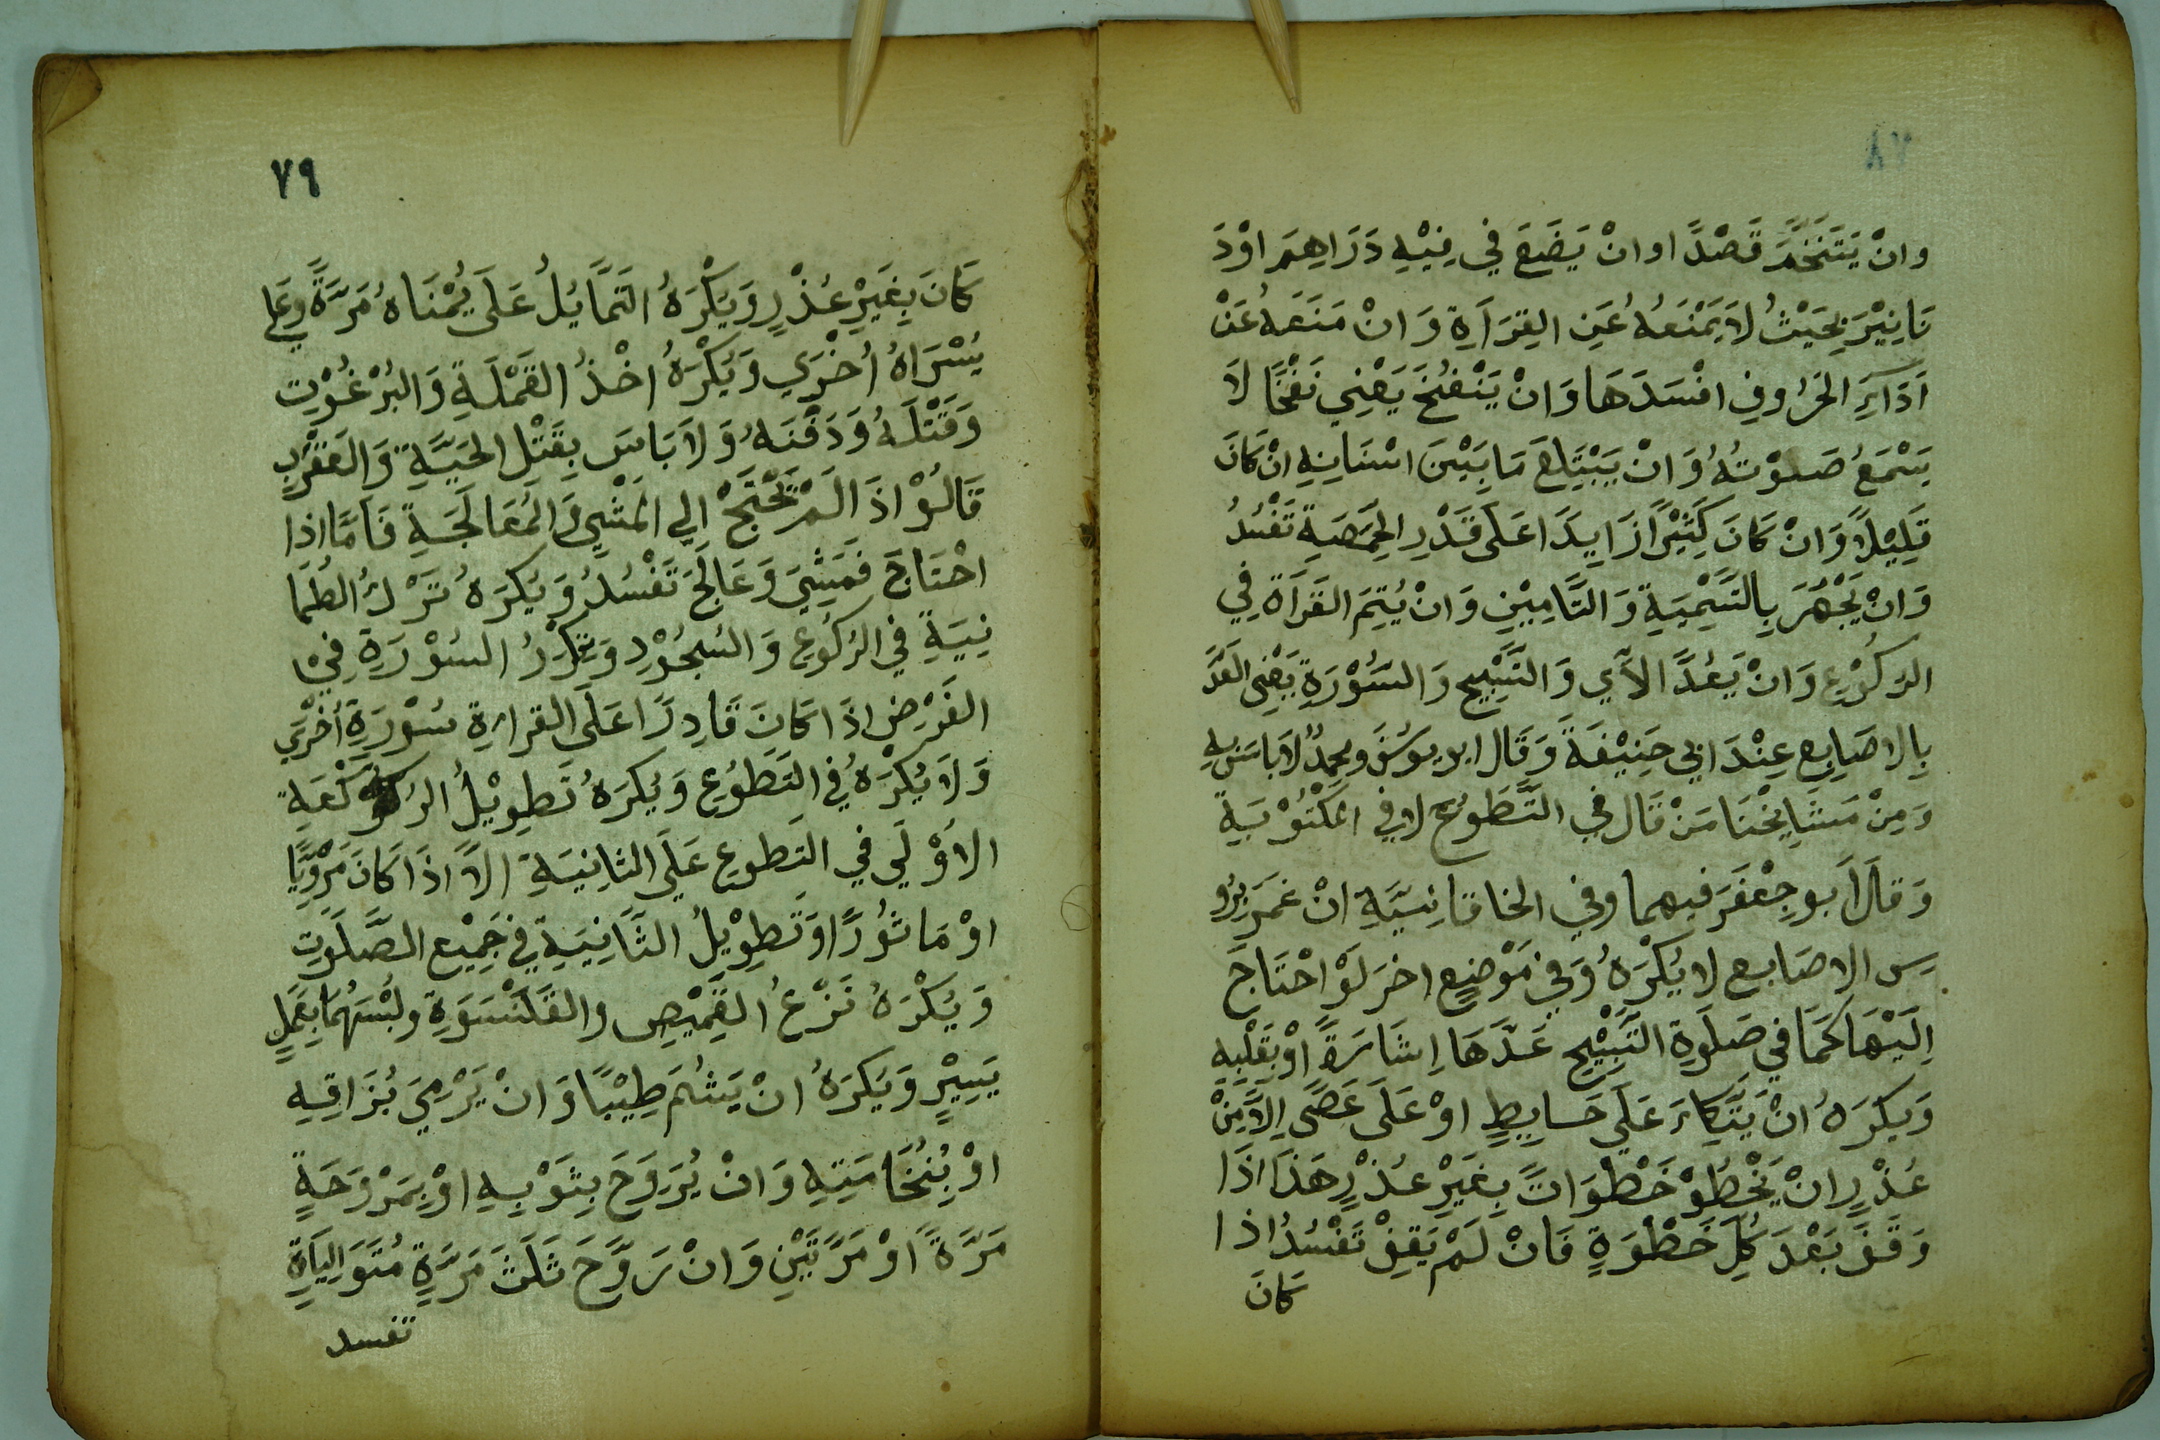 ٧٨
وانْ يَتَنَخَّمَ قَصْدًا اوانْ يَضَعَ فِي فِيْهِ دَرَاهِمَ اوْدَ
نَانِيْرَ بِحَيْثُ لَا يَمْنَعُهُ عَنِ القِرَآةِ وَانْ مَنَعَهُ عَنْ
اَدَآءِ الحُرُوفِ افْسَدَهَا وَانْ يَنْفُخَ يَعْنِي نَفْخًا لَا
يَسْمَعُ صَوْتُهُ وَانْ يَبْتَلِعَ مَا بَيْنَ اسْنَانِهِ انْ كَانَ
قَلِيْلًا وَانْ كَانَ كَثِيْرًا زَايِدَا عَلَى قَدْرِ الحِمَّصَةِ تَفْسُدُ
وَانْ يَجْهَرَ بِالتَّسْمِيَةِ وَالتَّامِيْنِ وَانْ يُتِمَّ القَرَآةَ فِي
الرُكُوْعِ وَانْ يَعُدَّ الآي وَالتَّسْبِيحِ وَالسُّوْرَةِ يَعْنِى العَدَّ
بِالاصَابِعِ عِنْدَ ابِي حَنِيْفَةَ وَقَالَ ابو يوسُفَ ومحمدٌ لَا بَاسَ بِهِ
وَمِنْ مَشَايِخْنَا مَنْ قَالَ فِي التَّطَوُّعِ لا فِي المَكْتُوْبَةِ
وَقَالَ اَبو جعْفَرَ فيهما وفي الخاقانِيَّةِ انْ غَمَزَ بِرُو
سِ الاصَابع لا يُكْرَهُ وَفِي مَوْضِعٍ اخَرَ لَوْ احْتَاجَ
اِلَيْهَا كَمَا فِي صَلَوةِ التَّسْبِيْحِ عَدَّهَا اِشَارَةً اوْ بِقَلْبِهِ
وَيكرَهُ انْ يَتَّكِاءَ عَلَى حَايِطٍ اوْ عَلَى عَصًى اِلَّا مِنْ
عُذْرٍ انْ يَخْطُوْ خَطْوَاتً بِغَيْرِ عُذْرٍ هَذَا اذَا
وَقَفَ بَعْدَ كُلِّ خَطْوَةٍ فَانْ لَمْ يَقِفْ تَفْسُدُ اذا
كَانَ
٧٩
كَانَ بِغَيْرِ عُذْرٍ وَيَكْرَهُ التَمَايُلُ عَلَى يُمْنَاهُ مَرَّةً وعَلي
يُسْرَاهُ اُخْرَي وَيُكْرَهُ اخْذُ القَمْلَةِ وَالبُرْغُوْتِ
وَقَتْلَهُ وَدَفْنَهُ وَلَا بَاسَ بِقَتْلِ الحَيَّةِ وَالعَقْرَبِ
قَالُوْا اذَا لَمْ تَحْتَجْ اِلي المَشْيِ وَالمُعَالَجَةِ فَامَّا اذا
احْتَاجَ فَمَشِيَ وَعَالَجَ تَفْسُدُ وَيُكرَهُ تَرْكُ الطُمَا
نِيَةِ فِي الرُكُوْعِ وَالسُجُوْدِ وَتِكْرَرُ السُوْرَةِ فِي
الفَرْضِ اذَا كَانَ قَادِرًا عَلَى القراءةِ سُوْرَةِ اُخْرَي
وَلَا يُكْرَهُ فِي التَطَوُعِ وَيُكرَهُ تَطِوِيْلُ الركعَةِ
الاُوْلَي فِي التَطوعِ عَلَى الثانِيَةِ الاَّ اذَا كَانَ مَرْوِيًّا
اوْ مَاثُوْرًا وَتَطِوِيْلُ الثَّانِيَةِ فِي جَمِيْعِ الصَّلَوتِ
وَيُكْرَهُ نَزْعُ القَمِيْصِ والقَلَنْسُوَةِ ولُبْسَهُمَا بِعَمَلٍ
يَسِيْرٍ وَيَكرَهُ انْ يَشُمَّ طِيْبًا وَانْ يَرْمِيَ بُزَاقِهِ
اوْ بِنُخَامَتِهِ وَانْ يُرَوِحَ بِثَوْبِهِ اوْ بِمَرْوَحَةٍ
مَرَّةً اوْ مَرَّتَيْنِ وَانْ رَوَّحَ ثَلَثَ مَرَّةٍ مُتَوَالِيَاةِ
تفسد